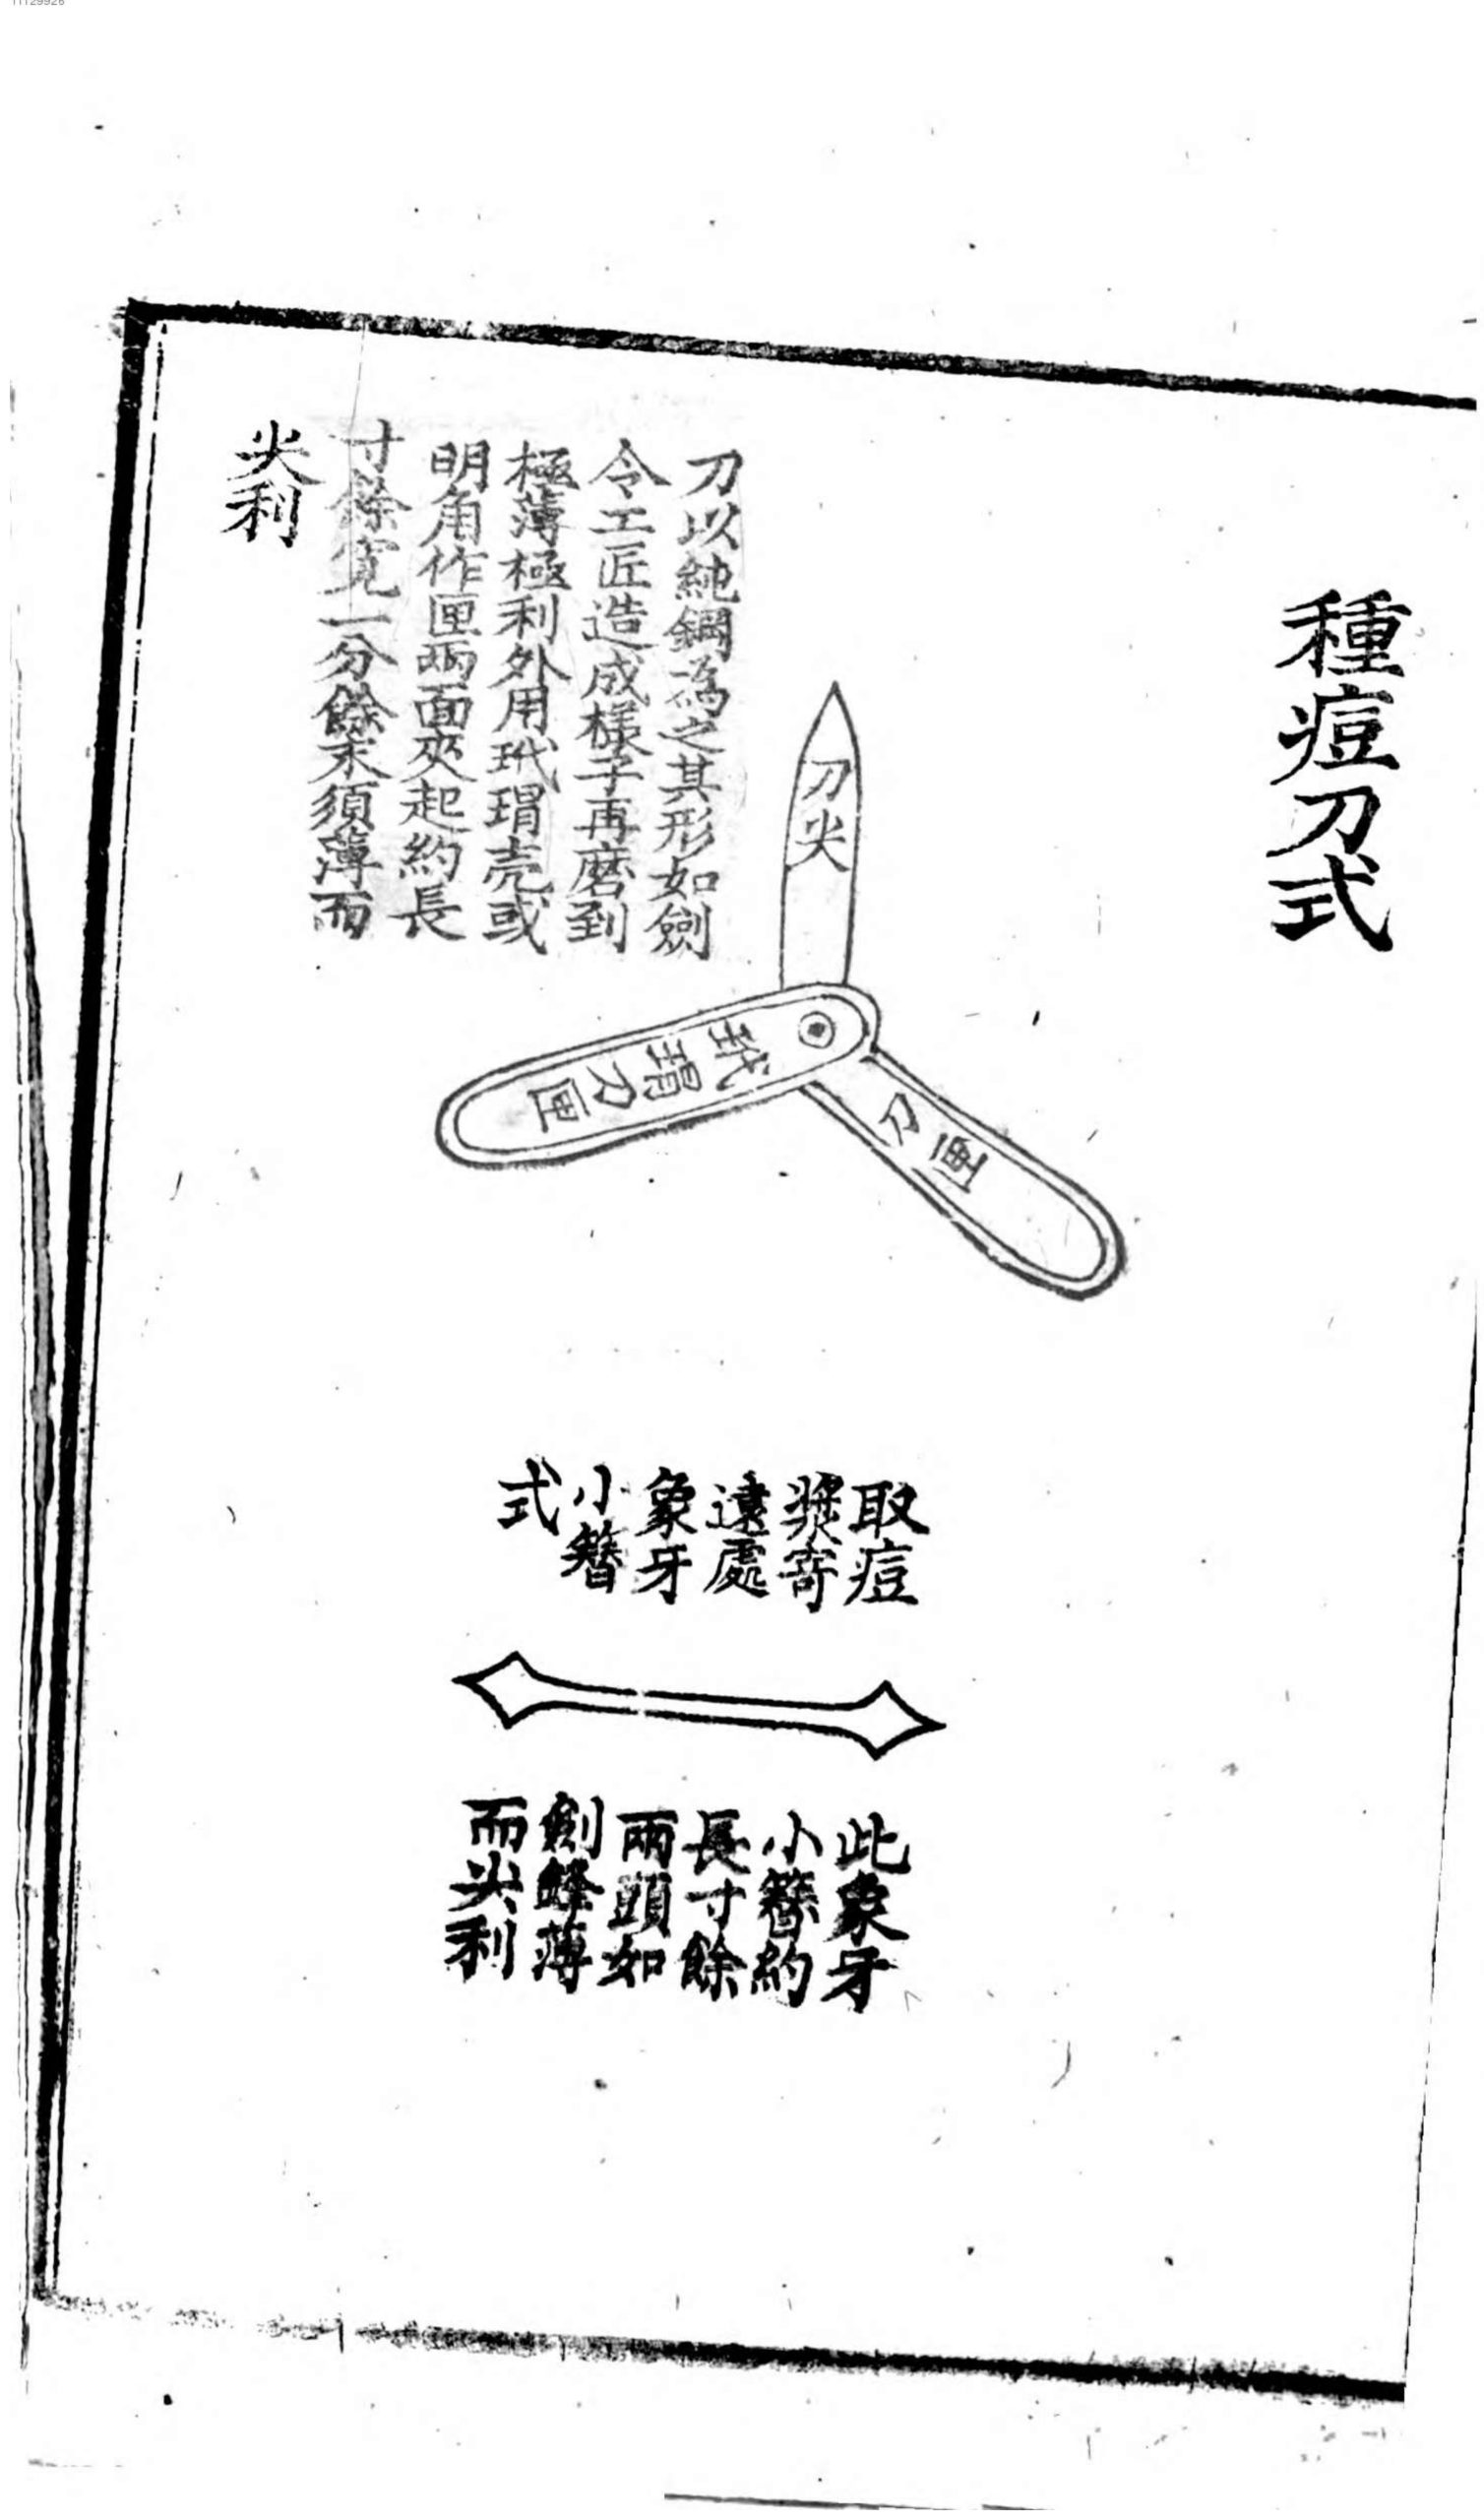 種痘刀式
刀尖
玳瑁刀匣
刀匣
刀以純鋼為之其形如劍
令工匠造成樣子再磨到
極薄極利外用玳瑁壳或
明角作匣兩面夾起約長
寸餘寬一分餘末須薄而
尖利
取痘
漿寄
遠處
象牙
小簪
式
此象牙
小簪約
長寸餘
兩頭如
劍鋒薄
而尖利